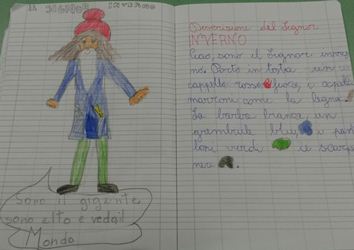 IL SIGNOR INVERNO
Sono il gigente
sono alto e vedo il
Mondo
Descrizione del Signor
INVERNO
Ciao, sono il Signor inver
no. Porto in testa un
cappello rosso fuoco, i capelli
marroni come la legna.
La barba bianca, un
grembiule blu, e i panta
loni verdi e le scarpe
nere.